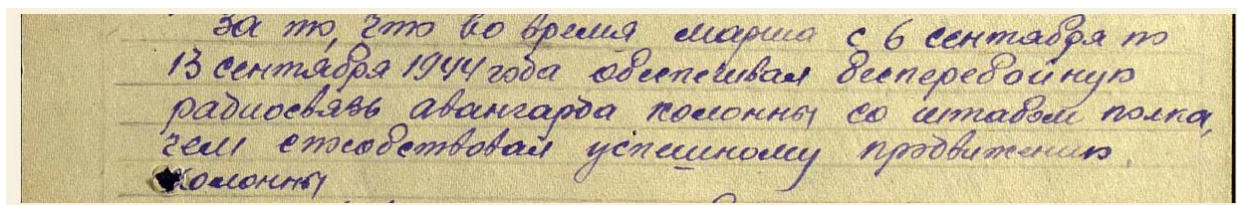 За то, что во время марша с 6 сентября по
13 сентября 1944 года обеспечивал бесперебойную
радиосвязь авангарда колонны со штабом полка,
чем способствовал успешному продвижению
колонны